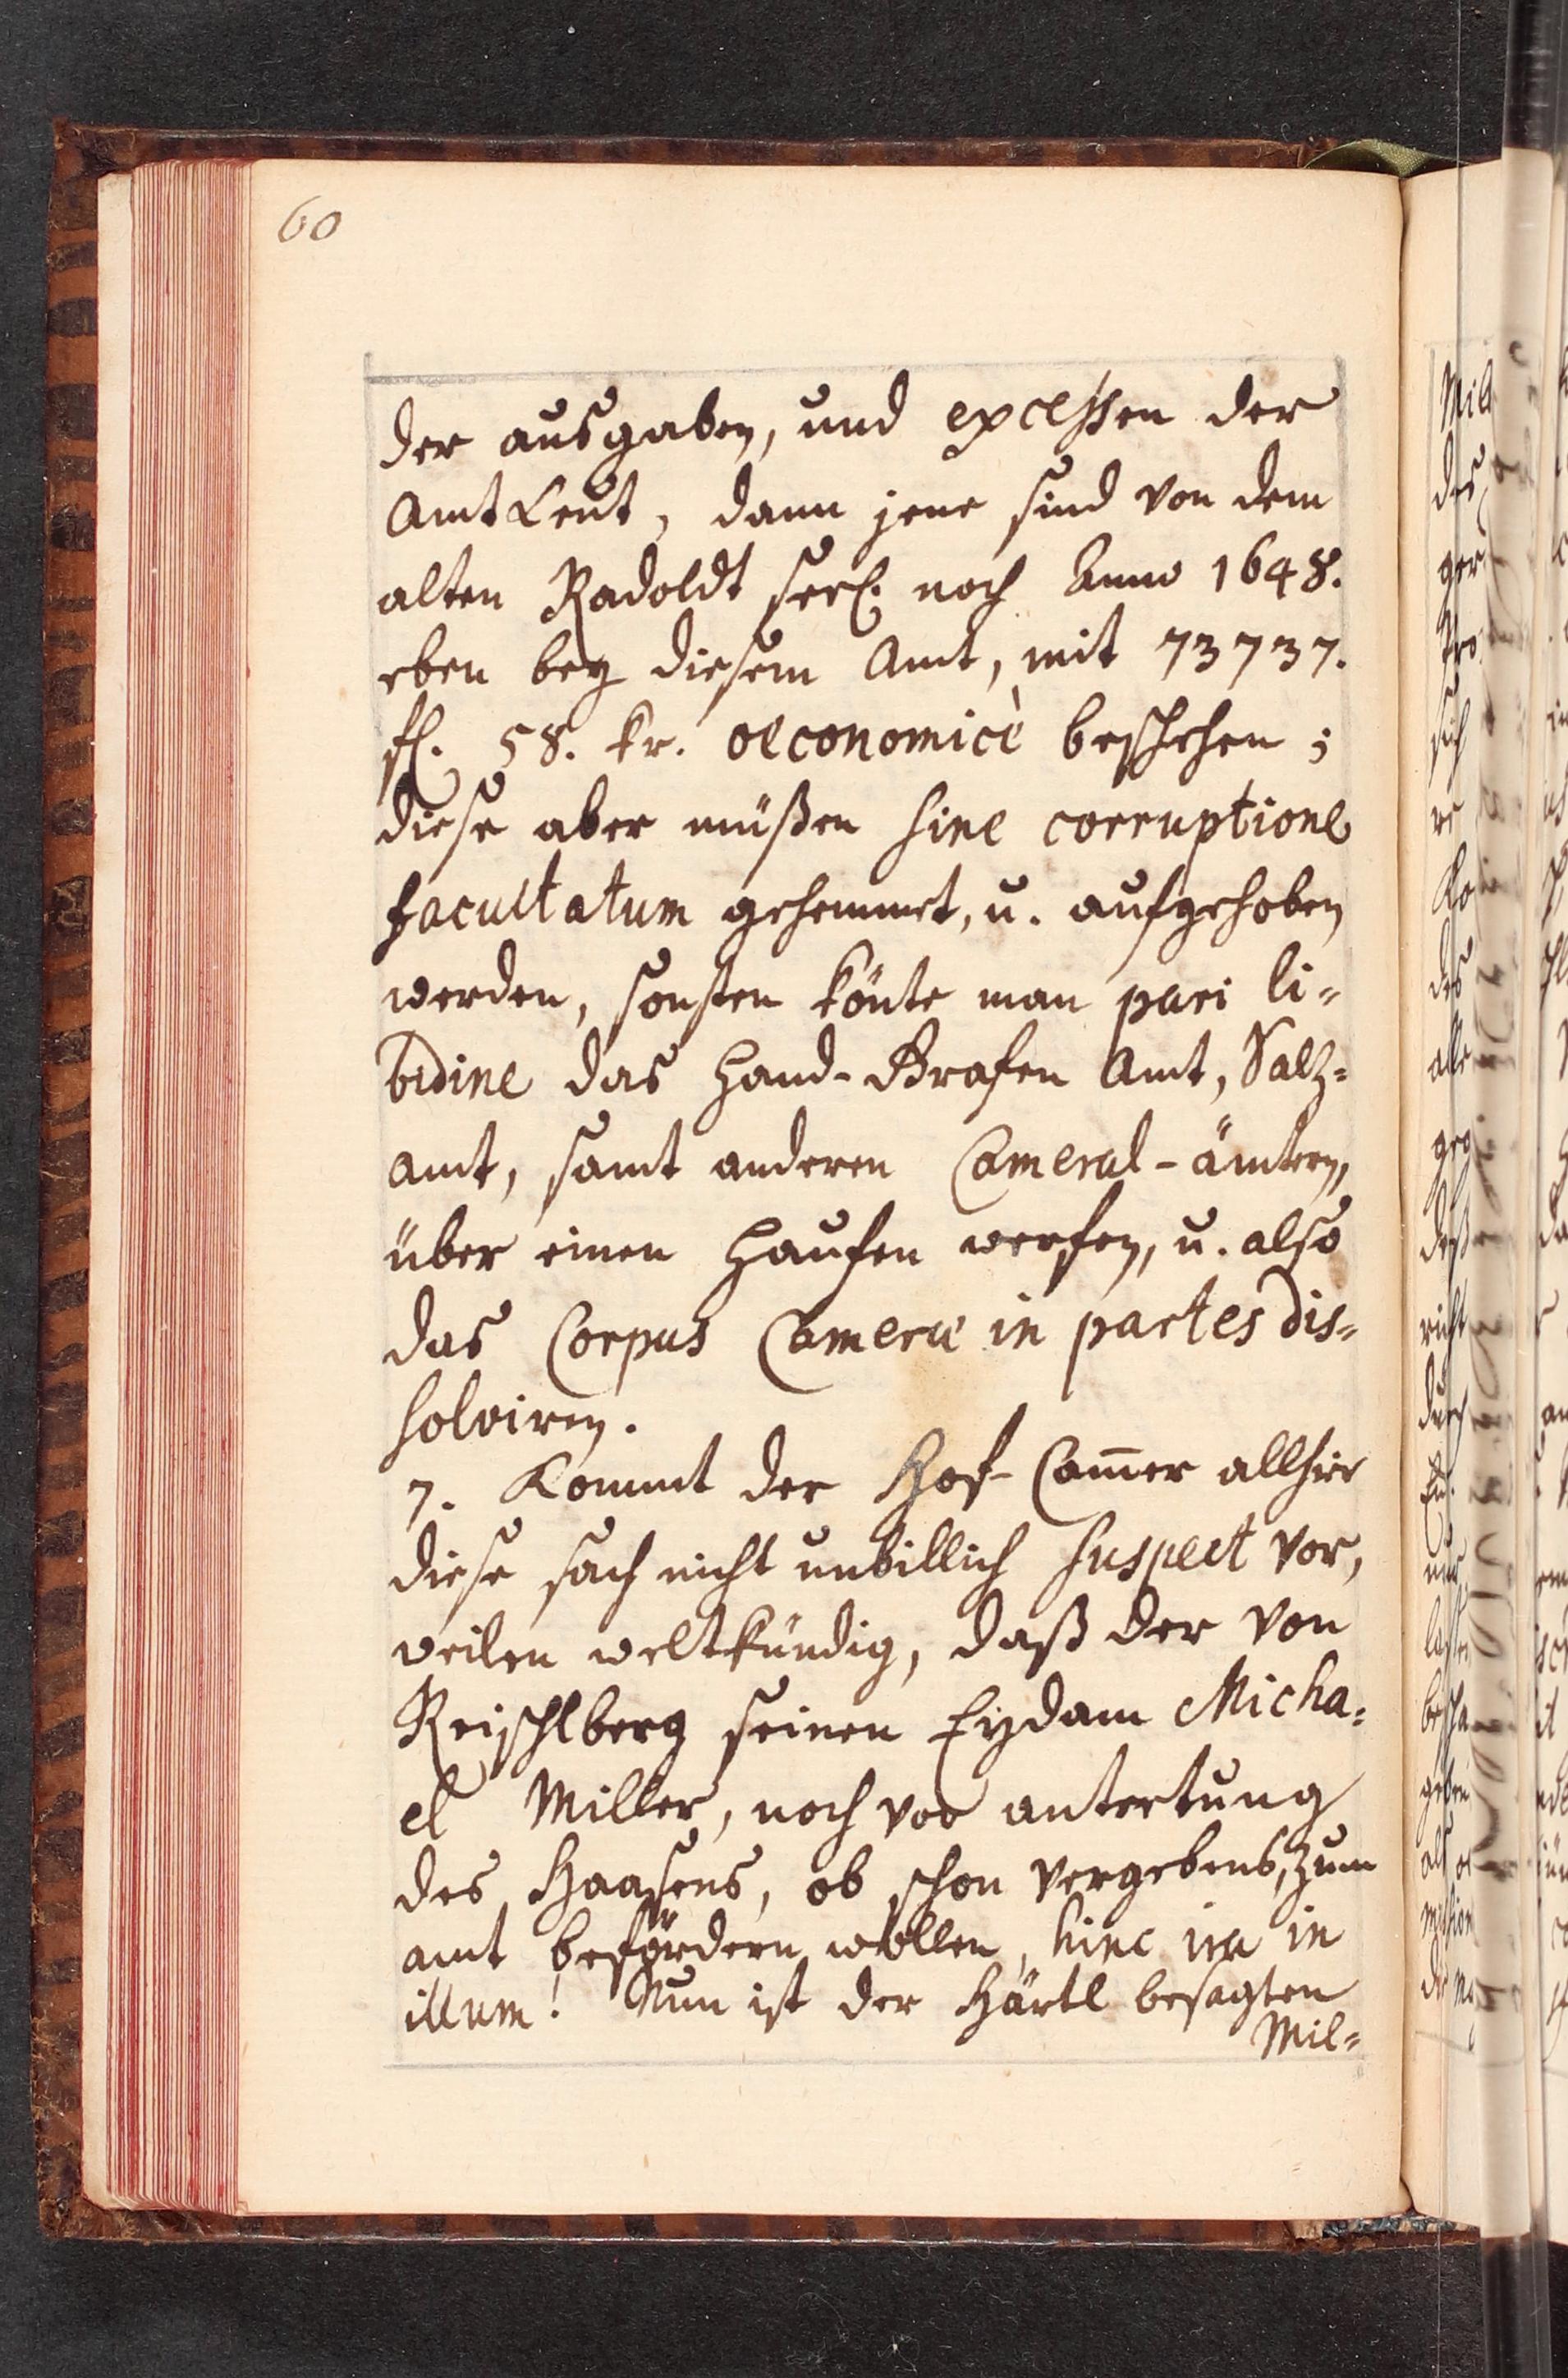 60
der ausgaben, und excessen der
Amt Leut, dann jene sind von dem
alten Radoldt seel. noch Anno 1648.
eben bey diesem Amt, mit 73737.
fl. 58. kr. oeconomicè beschehen;
diese aber müßen sine corruptione
facultatum gehemmet, u. aufgehoben
werden, sonsten könte man pari li=
bidine das Hand-Grafen Amt, Saltz=
amt, samt anderen Cameral-ämtern,
über einen Haufen werfen, u. also
das Corpus Camerae in partes dis=
solviren.
7. Kommt der Hof-Cam̄er allhier
diese sach nicht unbillich suspect vor,
weilen weltkündig, daß der von
Reischlberg seinen Eydam Micha=
el Miller, noch vor antretung
des Haasens, ob schon vergebens, zum
amt befördern wollen, hinc ira in
illum! Nun ist der Härtl besagten
Mil=